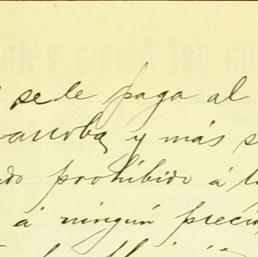 se le paga al
arroba, y más s
do prohibido á l
á ningún precio